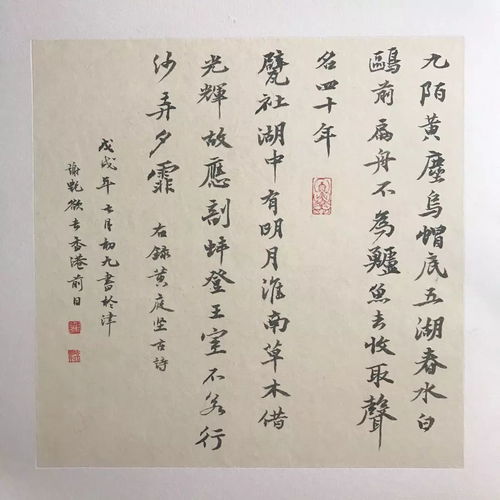 九陌黃塵烏帽底五湖春水白
鷗前扁舟不為鱸魚去收取聲
名四十年
甓社湖中有明月淮南草木借
光輝故應剖蚌登王室不若行
沙弄夕霏
右錄黃庭堅古詩
戊戌年七月初九書於津
欲去香港前日